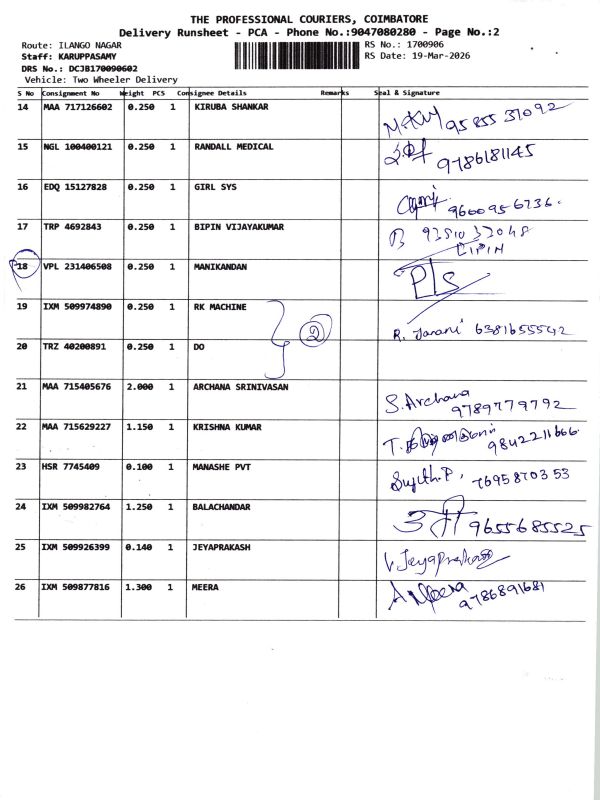 THE PROFESSIONAL COURIERS, COIMBATORE
Delivery Runsheet - PCA - Phone No.:9047080280 - Page No.:2
Route: ILANGO NAGAR RS No.: 1700906
Staff: KARUPPASAMY RS Date: 19-Mar-2026
DRS No.: DCJB170090602
Vehicle: Two Wheeler Delivery
S No Consignment No Weight PCS Consignee Details Remarks Seal & Signature
14 MAA 717126602 0.250 1 KIRUBA SHANKAR 95855 31092
15 NGL 100400121 0.250 1 RANDALL MEDICAL 9786181145
16 EDQ 15127828 0.250 1 GIRL SYS 9600956736.
17 TRP 4692843 0.250 1 BIPIN VIJAYAKUMAR B 9351033048
BIPIN
18 VPL 231406508 0.250 1 MANIKANDAN P/S
19 IXM 509974890 0.250 1 RK MACHINE ② R. Janani 6381655542
20 TRZ 40200891 0.250 1 DO
21 MAA 715405676 2.000 1 ARCHANA SRINIVASAN S. Archana
9789779792
22 MAA 715629227 1.150 1 KRISHNA KUMAR 9842211666.
23 HSR 7745409 0.100 1 MANASHE PVT Sujith.P, 7695870353
24 IXM 509982764 1.250 1 BALACHANDAR 9655685525
25 IXM 509926399 0.140 1 JEYAPRAKASH V. Jeyaprakash
26 IXM 509877816 1.300 1 MEERA A Meera
9786891681